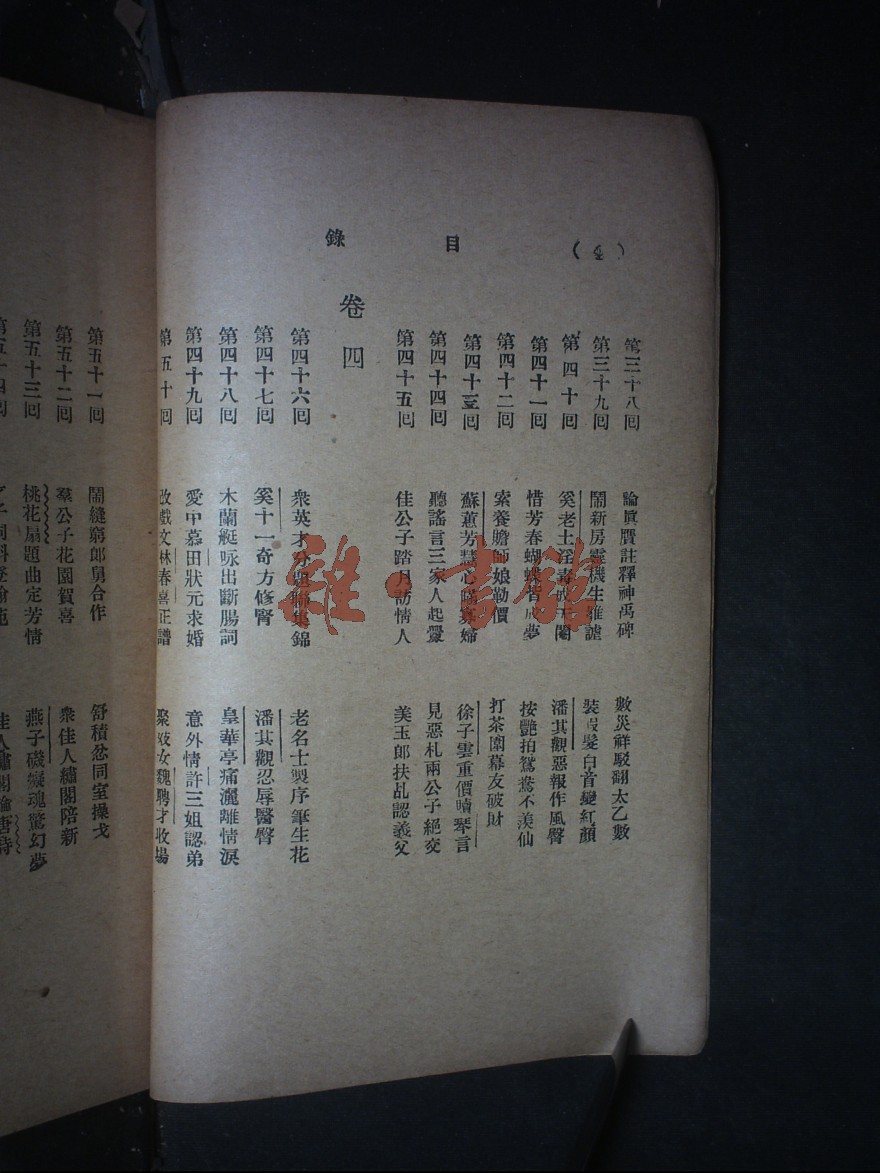 (4)
目錄
第三十八囘 論眞贋註釋神禹碑 數災祥駁翻太乙數
第三十九囘 鬧新房靈機生雅謔 裝假髮白首變紅顏
第四十囘 奚老土淫毒 潘其觀惡報作風臀
第四十一囘 惜芳春蝴蝶皆成夢 按艷拍鴛鴦不羨仙
第四十二囘 索養贍師娘勒價 打茶圍幕友破財
第四十三囘 蘇蕙芳慧心 寡婦 徐子雲重價贖琴言
第四十四囘 聽謠言三家人起釁 見惡札兩公子絕交
第四十五囘 佳公子踏月訪情人 美玉郎扶乩認義父
卷四
第四十六囘 衆英才分題聯集錦 老名士製序筆生花
第四十七囘 奚十一奇方修腎 潘其觀忍辱醫臀
第四十八囘 木蘭艇咏出斷腸詞 皇華亭痛灑離情淚
第四十九囘 愛中慕田狀元求婚 意外情許三姐認弟
第五十囘 改戲文林春喜正譜 聚 女魏聘才收塲
第五十一囘 鬧縫窮郎舅合作 舒積忿同室操戈
第五十二囘 羣公子花園賀喜 衆佳人繡閣陪新
第五十三囘 桃花扇題曲定芳情 燕子磯癡魂驚幻夢
第五十四囘 佳人繡閣論唐詩
雜·書館